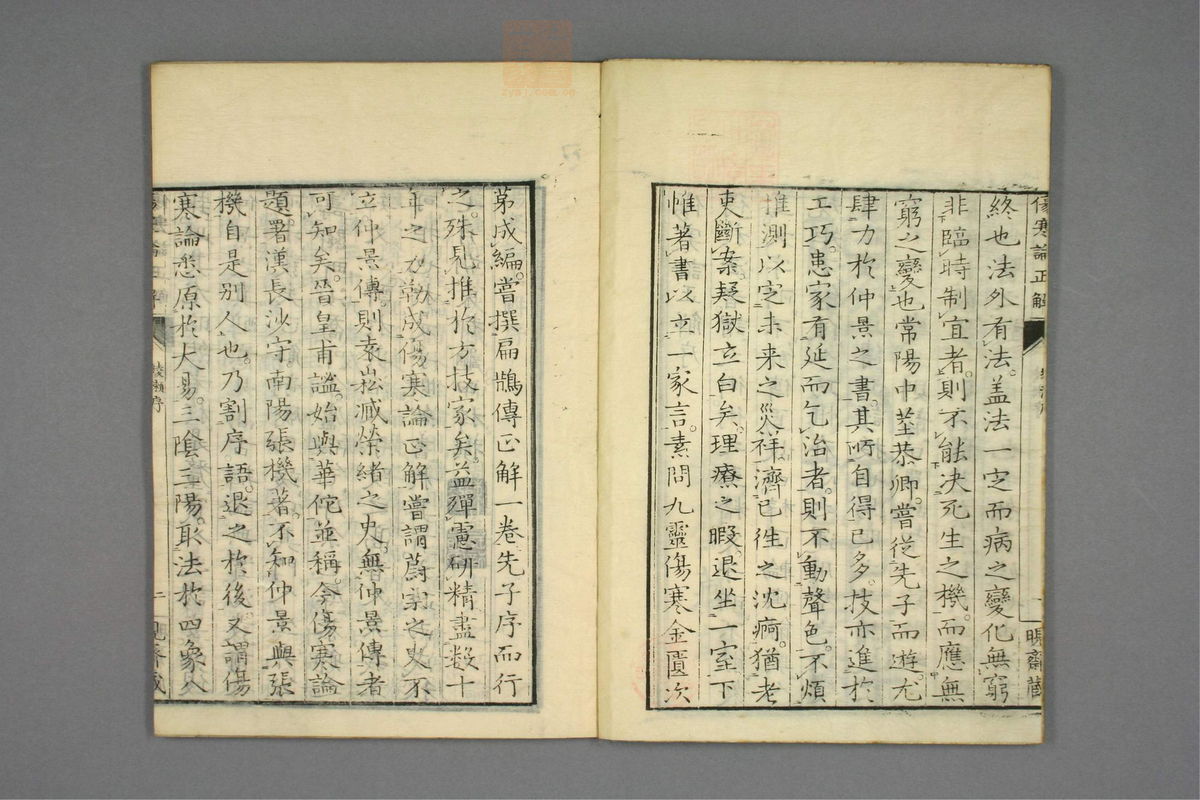 傷寒論正解
一
曉齋藏
終也。法外有法。盖法一定而病之變化無窮
非臨時制宜者。則不能決死生之機。而應無
窮之變也常陽中莖恭卿。嘗從先子而遊。尤
肆力於仲景之書。其所自得已多。技亦進於
工巧。患家有延而乞治者。則不動聲色。不煩
推測以定未来之災祥。濟已往之沈痾。猶老
吏斷案。疑獄立白矣。理療之暇。退坐一室下
惟著書以立一家言。素問九靈傷寒金匱次
苐成編。嘗撰扁鵲傳正解一卷先子序而行
之。殊見推於方技家矣。益殫慮研精盡数十
年之力勒成傷寒論正解嘗謂蔚宗之史不
立仲景傳。則袁崧臧榮緒之史。無仲景傳者
可知矣。晉皇甫謐。始與華佗並稱。今傷寒論
題。署漢長沙守。南陽張機著。不知仲景與張
機自是别人也。乃割序語。退之於後。又謂傷
寒論悉原於大易。三陰三陽。取法於四象。八
二